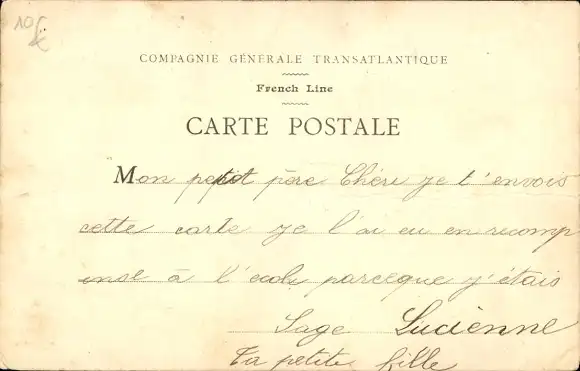 10€
COMPAGNIE GÉNÉRALE TRANSATLANTIQUE
French Line
CARTE POSTALE
Mon petit père Chéri je t'envois
cette carte je l'ai eu en recomp
ense à l'école parceque j'étais
Sage Lucienne
Ta petite fille